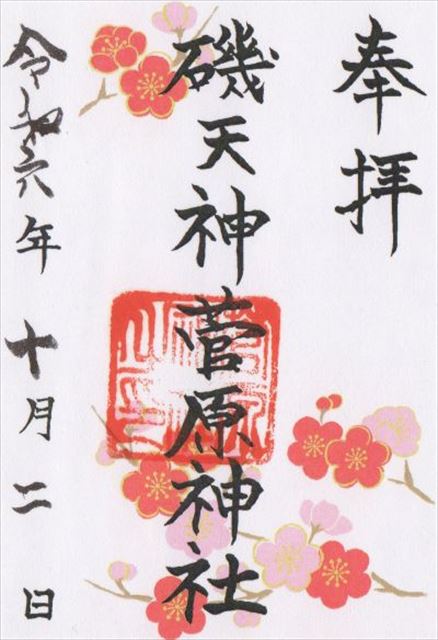 奉拝
磯天神菅原神社
令和六年十月二日